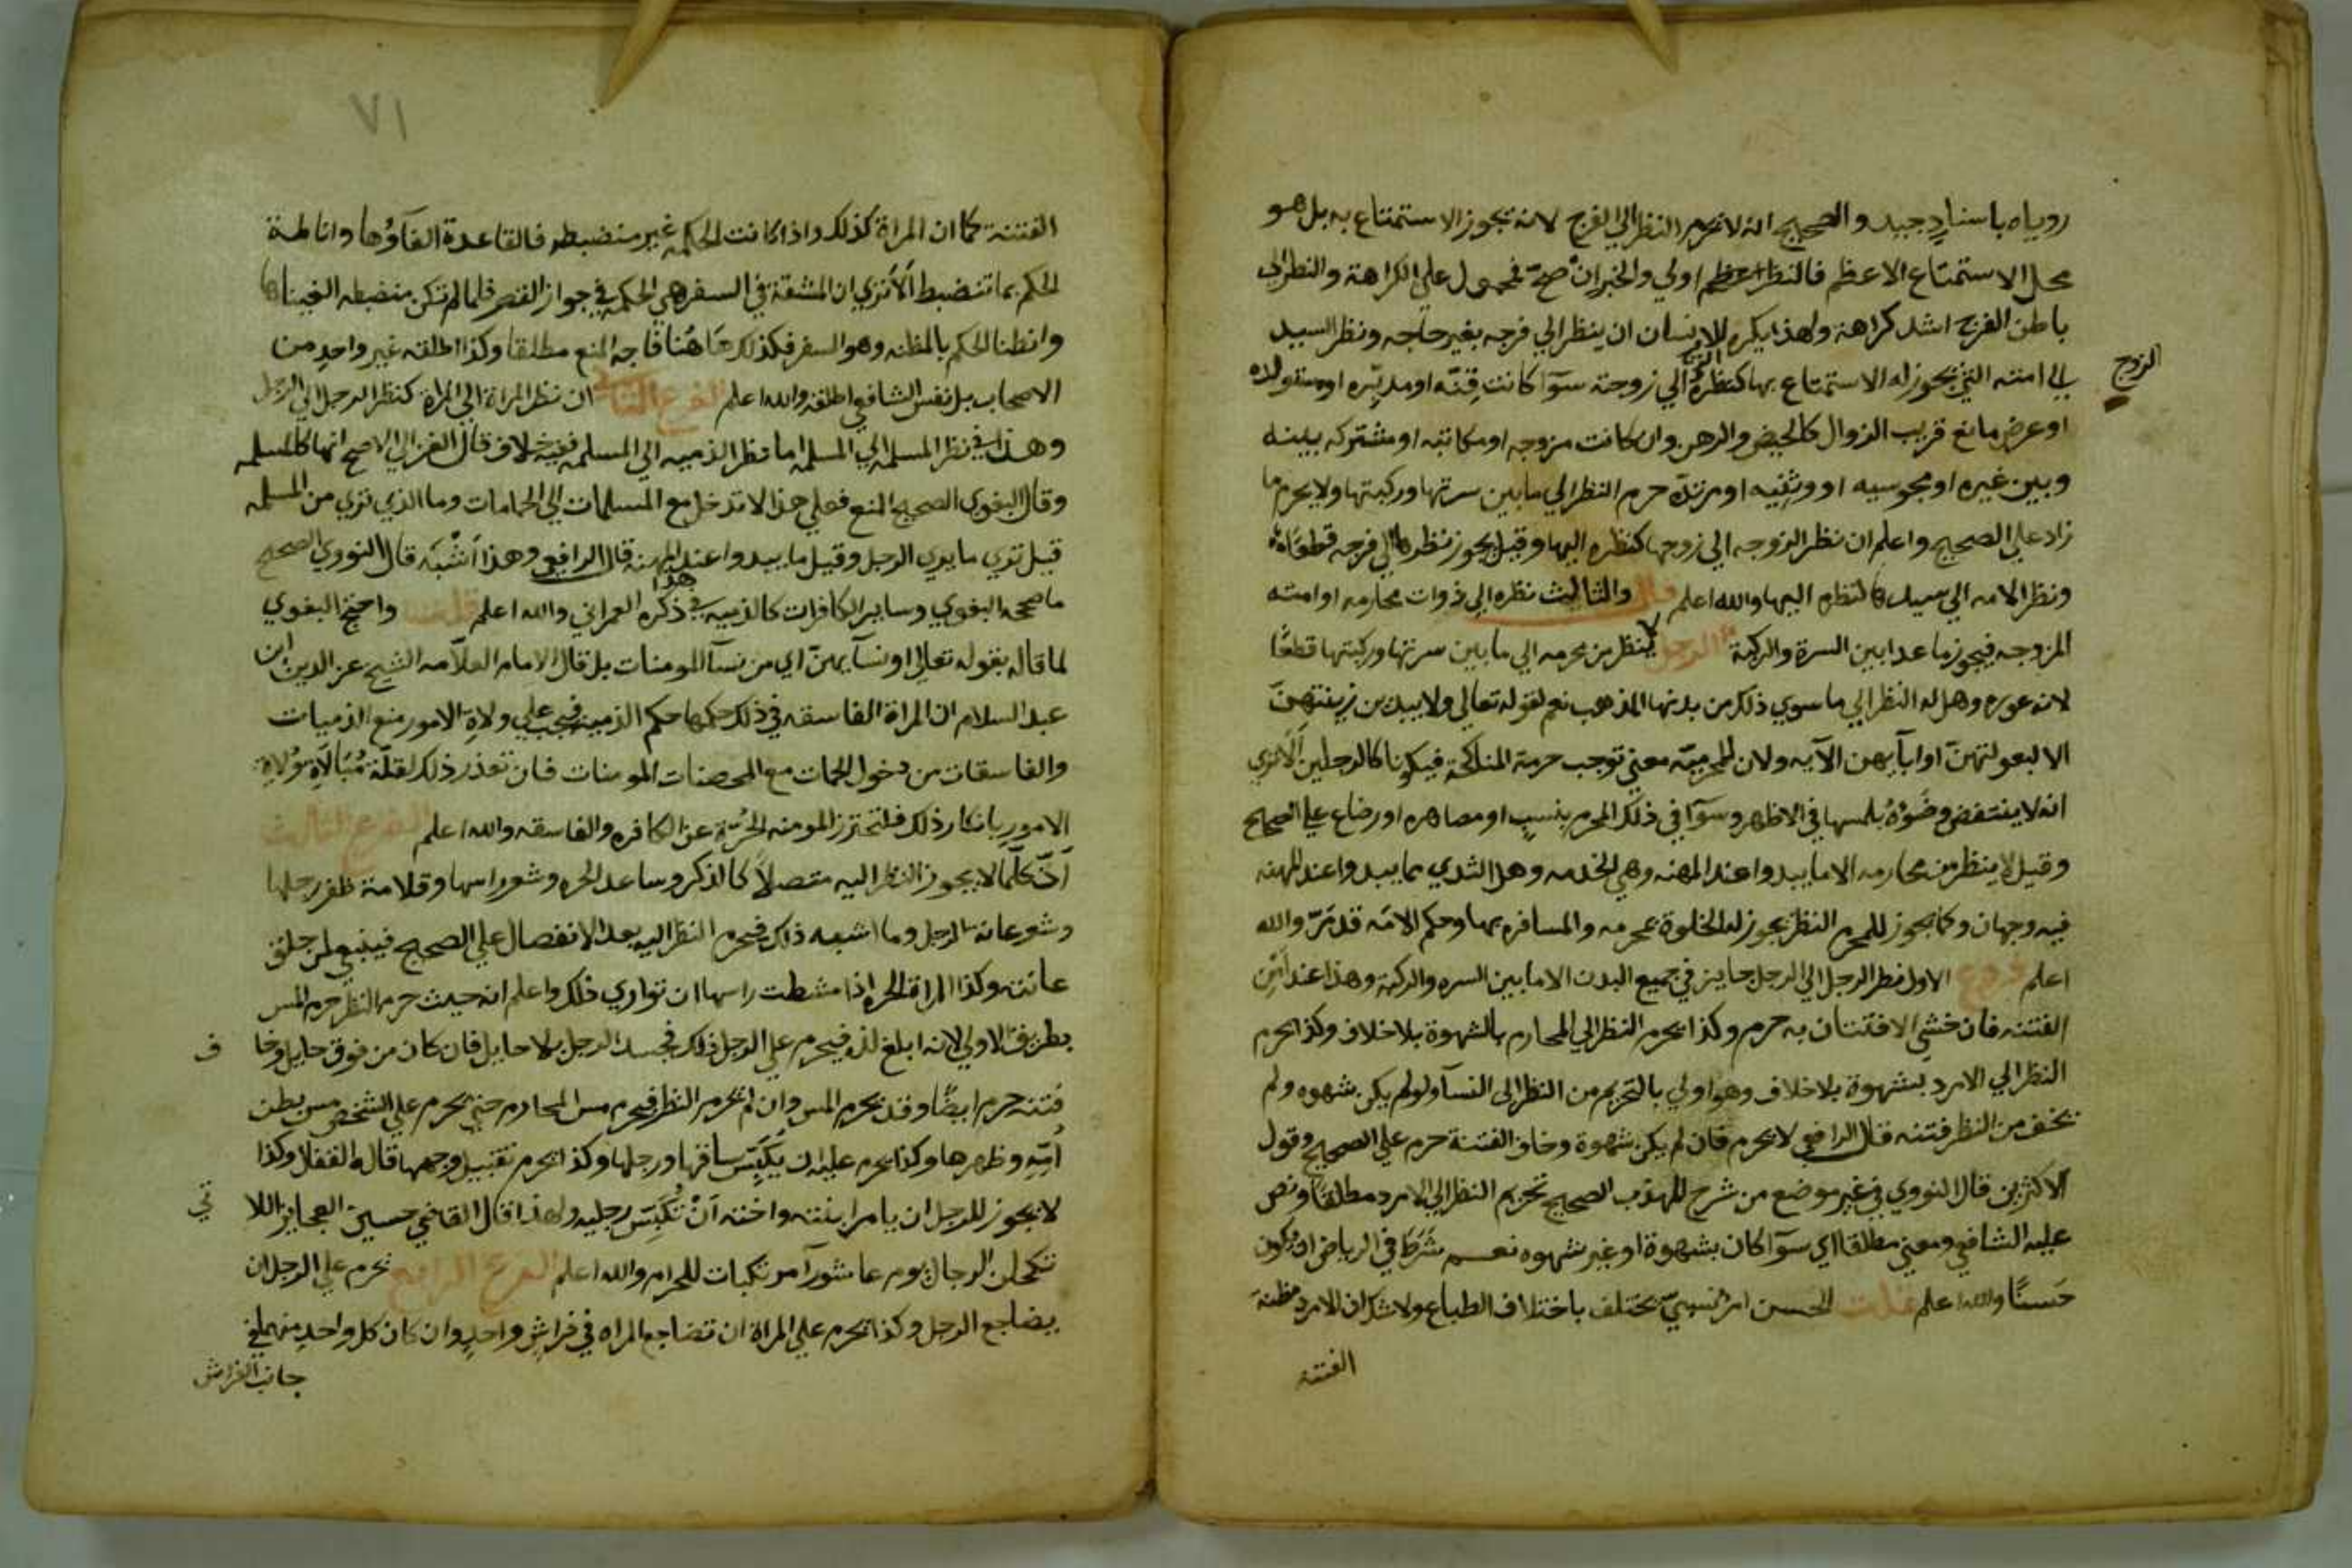 رويناه باسناد جيد والصحيح انه لا يحرم النظر الي الفرج لانه يجوز الاستمتاع به بل هو
محل الاستمتاع الاعظم فالنظر اولي والخبر ان صح فمحمول علي الكراهة والنظر الي
باطن الفرج اشد كراهة ولهذا يكره للانسان ان ينظر الي فرجه بغير حاجه ونظر السيد
الي امته التي يجوز له الاستمتاع بها كنظره الي زوجته سوآ كانت قِنّه او مدبّره او مستولده
الزوج
او عرض مانع قريب الزوال كالحيض والرهن وان كانت مزوجه او مكاتبه او مشتركه بينه
وبين غيره او مجوسيه او وثنيه او مرتدّه حرم النظر الي مابين سرتها وركبتها ولا يحرم ما
زاد علي الصحيح واعلم ان نظر الزوجه الي زوجها كنظره اليها وقيل يجوز نظرها الي فرجه قطعًا
ونظر الامه الي سيدها كنظره اليها والله اعلم قال والثالث نظره الي ذوات محارمه او امته
المزوجه فيجوز ما عدا بين السرة والركبة الرجل لا ينظر من محرمه الي ما بين سرتها وركبتها قطعًا
لانه عوره وهل له النظر الي ما سوي ذلك من بدنها المذهب نعم لقوله تعالي ولا يبدين زينتهنّ
الا لبعولتهنّ او ابآيهن الآيه ولان المحرميّه معني توجب حرمة المناكحة فيكونا كالرجلين الا تري
انه لا ينتقض وضوءُه بلمسها في الاظهر وسوآ في ذلك المحرم بنسب او مصاهره او رضاع علي الصحيح
وقيل لا ينظر من محارمه الا ما يبدوا عند المهنه وهي الخدمه وهل الثدي مما يبدوا عند المهنه
فيه وجهان وكما يجوز للمحرم النظر يجوز له الخلوة بمحرمه والمسافره بها وحكم الامَه قد مَرّ والله
اعلم فروع الاول نظر الرجل الي الرجل جايز في جميع البدن الا ما بين السره والركبة وهذا عند امن
الفتنه فان خشي الافتتان به حرم وكذا يحرم النظر الي المحارم بالشهوة بلا خلاف وكذا يحرم
النظر الي الامرد بشهوة بلا خلاف وهو اولي بالتحريم من النظر الي النسآ ولو لم يكن بشهوه ولم
يخف من النظر فتنه قال الرافعي لا يحرم فان لم يكن شهوة وخاف الفتنة حرم علي الصحيح وقول
الاكثرين قال النووي في غير موضع من شرح المهذب الصحيح تحريم النظر الي الامرد مطلقا ونص
عليه الشافعي ومعني مطلقا اي سوآ كان بشهوة او غير شهوه نعم شَرَط في الرياض ان يكون
حَسنًا والله اعلم قلت الحسن امر نسبيّ يختلف باختلاف الطباع ولا شك ان الامرد مظنة
الفتنة
٧١
الفتنة كما ان المراة كذلك واذا كانت الحكمه غير منضبطه فالقاعدة الغآوُها واناطة
الحكم بما تنضبط الا تري ان المشقة في السفر هي الحكمه في جواز القصر فلما لم تكن منضبطه الغيناها
وانطنا الحكم بالمظنه وهو السفر فكذلك هاهُنا فاجه المنع مطلقا وكذا اطلقه غير واحد من
الاصحاب بل نفس الشافعي اطلقه والله اعلم الفرع الثاني ان نظر المراة الي المراة كنظر الرجل الي الرجل
وهذا في نظر المسلمه الي المسلمه اما نظر الذميه الي المسلمه ففيه خلاف قال الغزالي الاصح انها كالمسلمه
وقال البغوي الصحيح المنع فعلي هذا لا تدخل مع المسلمات الي الحمامات وما الذي تري من المسلمه
قيل تري ما يري الرجل وقيل ما يبدوا عند المهنه قال الرافعي وهذا اَشْبَه قال النووي الصحيح
ما صححه البغوي وساير الكافرات كالذميه في هذا ذكره العمراني والله اعلم قلت واحتج البغوي
لما قاله بقوله تعالي او نسآيهنّ اي من نسآ المومنات بل قال الامام العلاّمه الشيخ عز الدين ابن
عبد السلام ان المراة الفاسقه في ذلك حكمها حكم الذميه فيجب علي ولاةِ الامور منع الذميات
والفاسقات من دخول الحمات مع المحصنات المومنات فان تعذر ذلك لقلّة مُبَالاَةِ وُلاةِ
الامور بانكار ذلك فلتحترز المومنه الحُرّة عن الكافره والفاسقه والله اعلم الفرع الثالث
اَنّ كلّما لا يجوز النظر اليه متصلاً كالذكر وساعد الحره وشعر راسها وقلامة ظفر رجلها
وشعر عانة الرجل وما اشبه ذلك فيحرم النظر اليه بعد الانفصال علي الصحيح فينبغي لمن حلق
عانته وكذا المراة الحره اذا مشطت راسها ان تواري ذلك واعلم انه حيث حرم النظر حرم المس
بطريق الاولي لانه ابلغ لذه فيحرم علي الرجل ذلك فخِذ الرجل بلا حايل فان كان من فوق حايل وخا
ف
فتنه حرم ايضًا وقد يحرم المس وان لم يحرم النظر فيحرم مس المحارم حتي يحرم علي الشخص مس بطن
اُمّه وظهرها وكذا يحرم عليه ان يُكَبّس ساقها ورجلها وكذا يحرم تقبيل وجهها قاله القفال وكذا
لا يجوز للرجل ان يامر ابنته واخته اَنْ تُكَبّسَ رجليه ولهذا قال القاضي حسين العجايز اللا
تي
تكحلن الرجال يوم عاشورآ مرتكبات للحرام والله اعلم الفرع الرابع يحرم علي الرجل ان
يضاجع الرجل وكذا يحرم علي المراة ان تضاجع المراه في فراش واحدٍ وان كان كل واحد منهما في
جانب الفراش